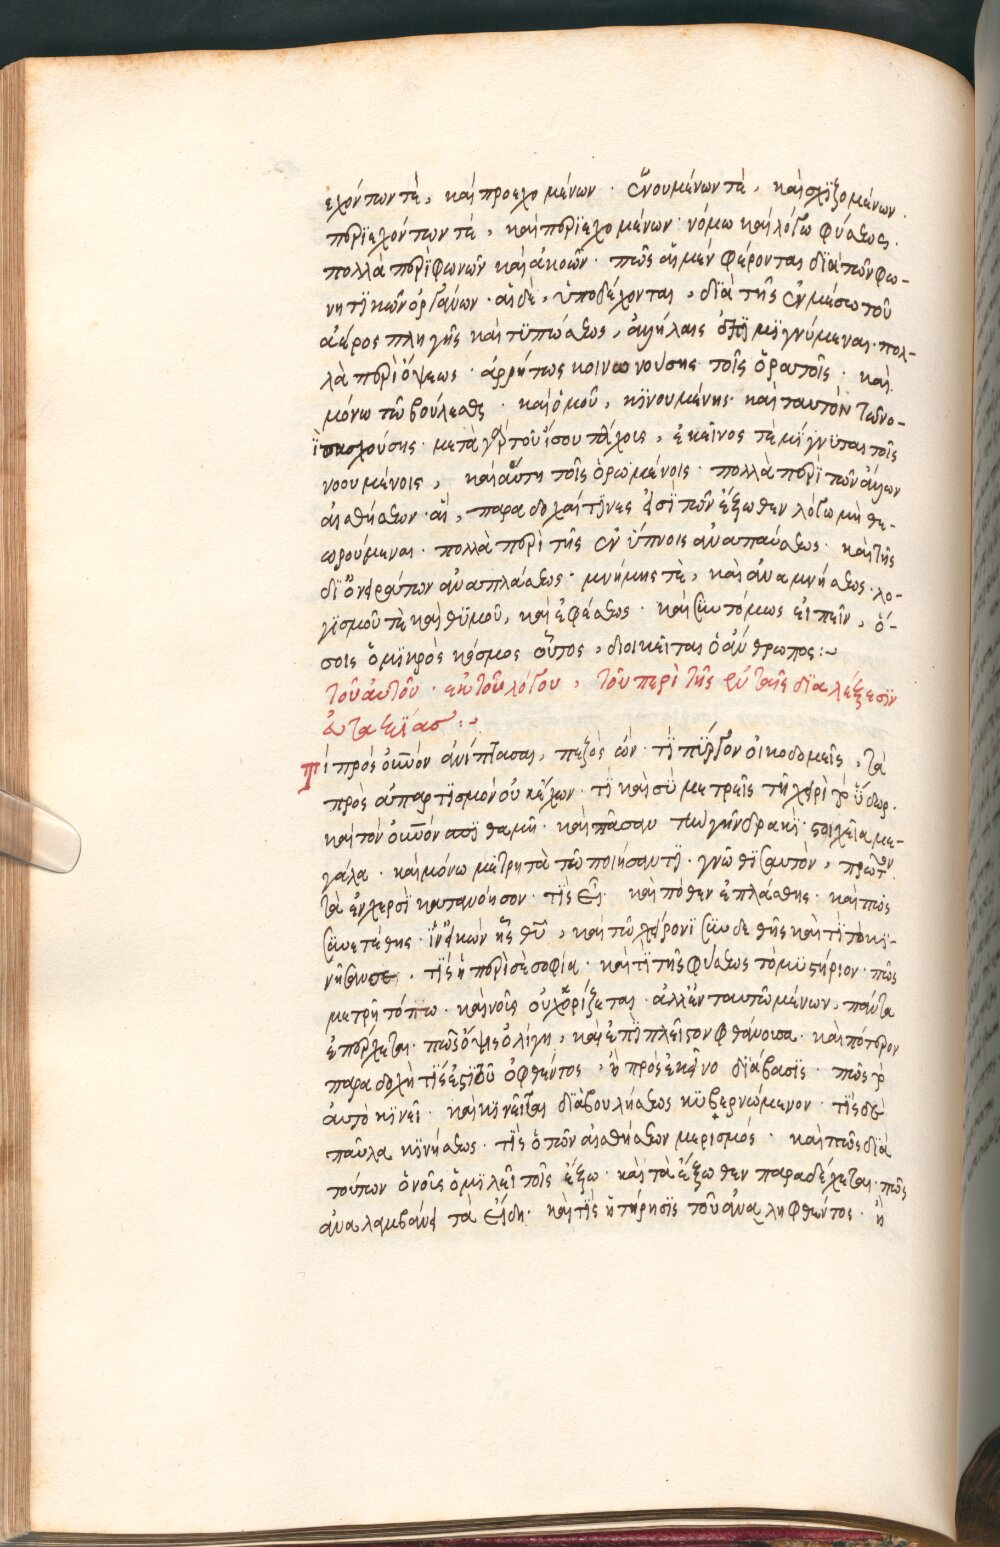 εχόντων τὲ, καὶ προεχομένων · ἑνουμένων τὲ, καὶ σχϊζομένων ·
περϊεχόντων τὲ, καὶ περϊεχομένων · νόμω καὶ λόγω φύσεως ·
πολλὰ περὶ φωνῶν καὶ ἀκοῶν · πῶς αἱ μὲν φέρονται δϊὰ τῶν φω-
νητϊκῶν ὀργάνων · αἱ δὲ, ὑποδέχονται, δϊὰ τῆς ἐν μέσω τοῦ
ἀέρος πληγῆς καὶ τϋπώσεως, ἀλλήλαις ἐπϊμϊγνύμεναι · πολ-
λὰ περὶ ὄψεως · ἀρρήτως κοινωνούσης τοῖς ὁρατοῖς · καὶ
μόνω τῶ βούλεσθαι · καὶ ὁμοῦ, κϊνουμένης · καὶ ταυτὸν τῶ νο-
ῒ πασχούσης · μετὰ γὰρ τοῦ ἴσου τάχοις, ἐκεῖνος τὲ μίγνϋται τοῖς
νοουμένοις, καὶ αὕτη τοῖς ὁρωμένοις · πολλὰ περὶ τῶν ἄλλων
αἰσθήσεων · αἳ, παραδοχαί τϊνες εἰσὶ τῶν ἔξωθεν λόγω μὴ θε-
ωρούμεναι · πολλὰ περὶ τῆς ἐν ὕπνοις ἀναπαύσεως · καὶ τῆς
δϊ' ὀνειράτων ἀναπλάσεως · μνήμης τὲ, καὶ ἀναμνήσεως · λο-
γϊσμοῦ τὲ καὶ θϋμοῦ, καὶ ἐφέσεως · καὶ συντόμως εἰπεῖν, ὅ-
σοις ὁ μϊκρὸς κόσμος οὗτος, διοικεῖται ὁ ἄνθρωπος :~
τοῦ αὐτοῦ · ἐκ τοῦ λόγου, τοῦ περὶ τῆς ἐν ταῖς δϊαλέξεσϊν
εὐταξίας :~
Τί πρὸς οὐρανὸν ἀνίπτασαι, πεζὸς ὤν · τί πϋργον οἰκοδομεῖς, τὰ
πρὸς ἀπαρτϊσμὸν οὐκ ἔχων · τί καὶ σὺ μετρεῖς τῆ χειρὶ τὸ ὕδωρ ·
καὶ τὸν οὐρανὸν σπϊθαμῆ · καὶ πᾶσαν τὴν γῆν δρακί · στοιχεῖα με-
γάλα · καὶ μόνω μετρητὰ τῶ ποιήσαντϊ · γνῶθϊ σαυτὸν, πρῶτον
τὰ ἐν χερσὶ κατανόησον · τίς εἶ · καὶ πόθεν ἐπλάσθης · καὶ πῶς
συνετέθης · ἵν' εἰκὼν ἧς θεοῦ, καὶ τῶ χείρονϊ συνδεθῆς καὶ τί τὸ κϊ-
νῆσαν σε · τίς ἡ περὶ σὲ σοφία · καὶ τί τῆς φύσεως τὸ μϋστήριον · πῶς
μετρῆ τόπω · καὶ νοῦς οὐ χωρίζεται · ἀλλ' ἐν ταυτῶ μένων, πάντα
ἐπέρχεται · πῶς ὄψις ὀλίγη, καὶ ἐπὶ πλεῖστον φθάνουσα · καὶ πότερον
παραδοχὴ τίς ἐστϊ τοῦ ὀφθέντος, ἢ πρὸς ἐκεῖνο δϊάβασϊς · πῶς τὸ
αὐτὸ κϊνεῖ · καὶ κϊνεῖται δϊὰ βουλήσεως κϋβερνώμενον · τίς δὲ
παῦλα κϊνήσεως · τίς ὁ τῶν αἰσθήσεων μερισμός · καὶ πῶς δϊὰ
τούτων ὁ νοῦς ὁμϊλεῖ τοῖς ἔξω · καὶ τὰ ἔξωθεν παραδέχεται · πῶς
ἀναλαμβάνει τὰ εἴδη · καὶ τίς ἡ τήρησϊς τοῦ ἀναληφθέντος · ἢ